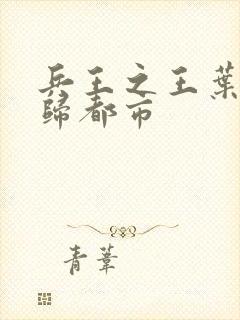 兵王之王葉
歸都市
青葦